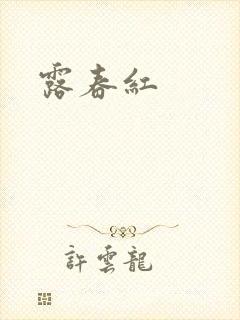 露春紅
許雲龍